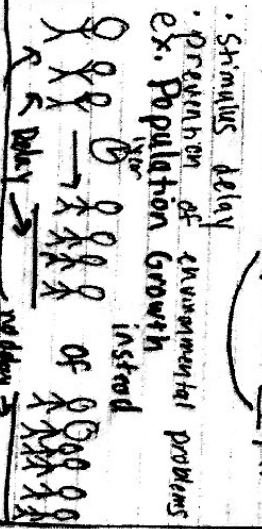 • Stimulus delay
• prevention of environmental problems
ex. Population Growth
instead
of
Delay →
no delay →